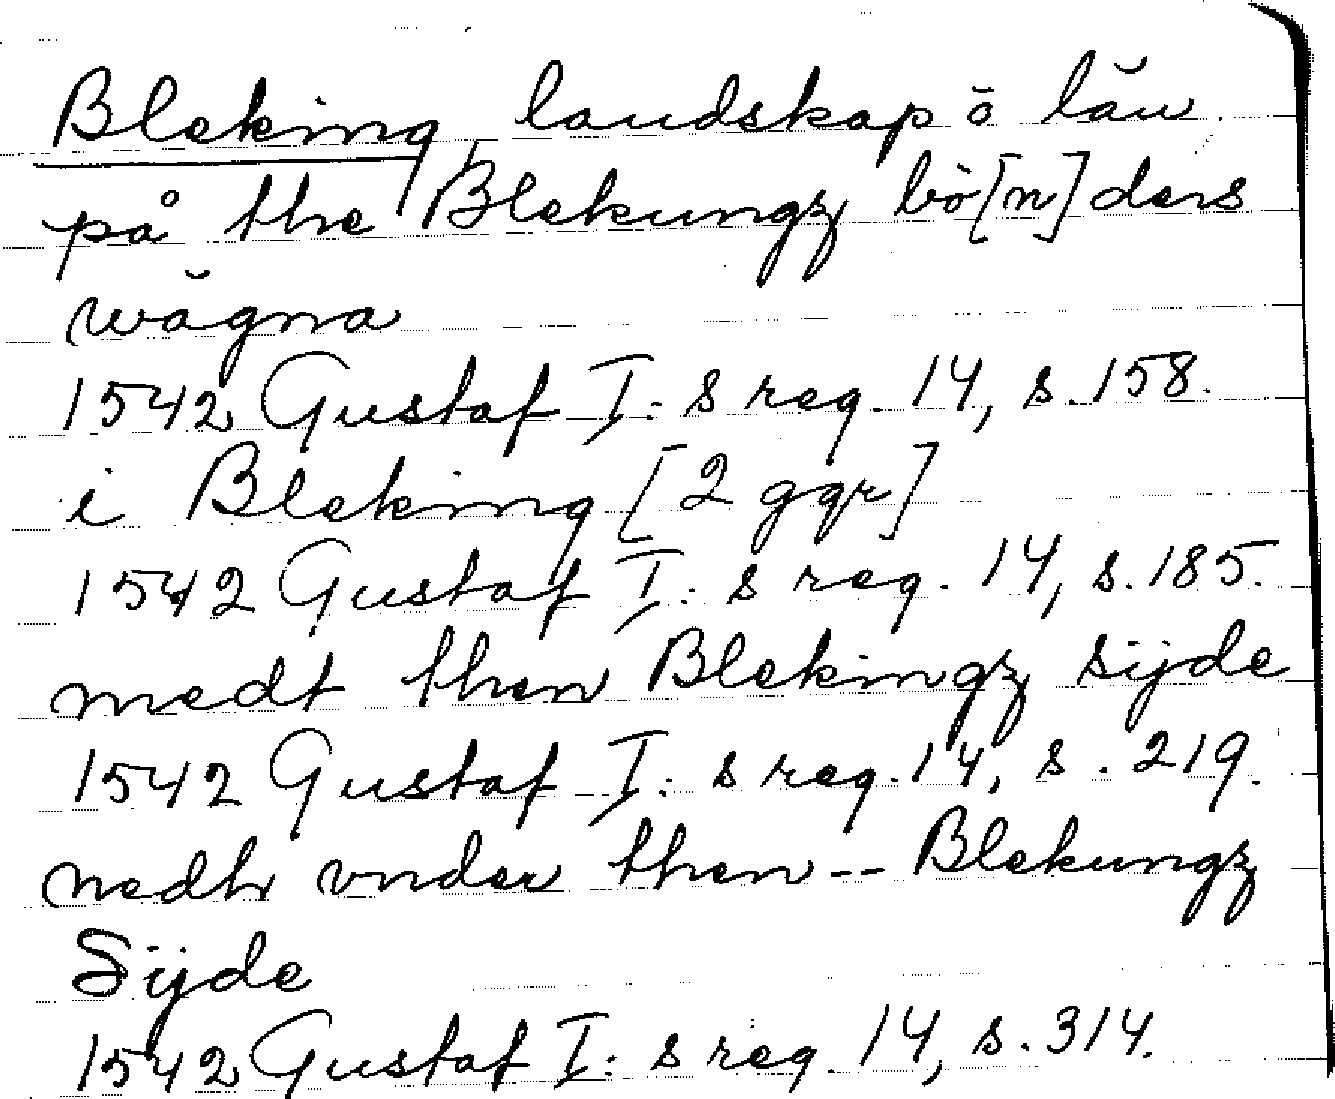 Bleking, landskap o län
på the Blekungz bö[n]ders
wägna
1542 Gustaf I:s reg. 14, s. 158.
i Bleking [2 ggr]
1542 Gustaf I:s reg. 14, s. 185.
medt then Blekingz sijde
1542 Gustaf I:s reg. 14, s. 219.
nedh vnder then -- Blekungz
Sijde
1542 Gustaf I:s reg 14, s. 314.